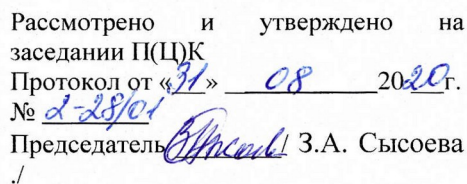 Рассмотрено и утверждено на
заседании П(Ц)К
Протокол от «31» 08 2020г.
№ 2-28/01
Председатель / З.А. Сысоева
./